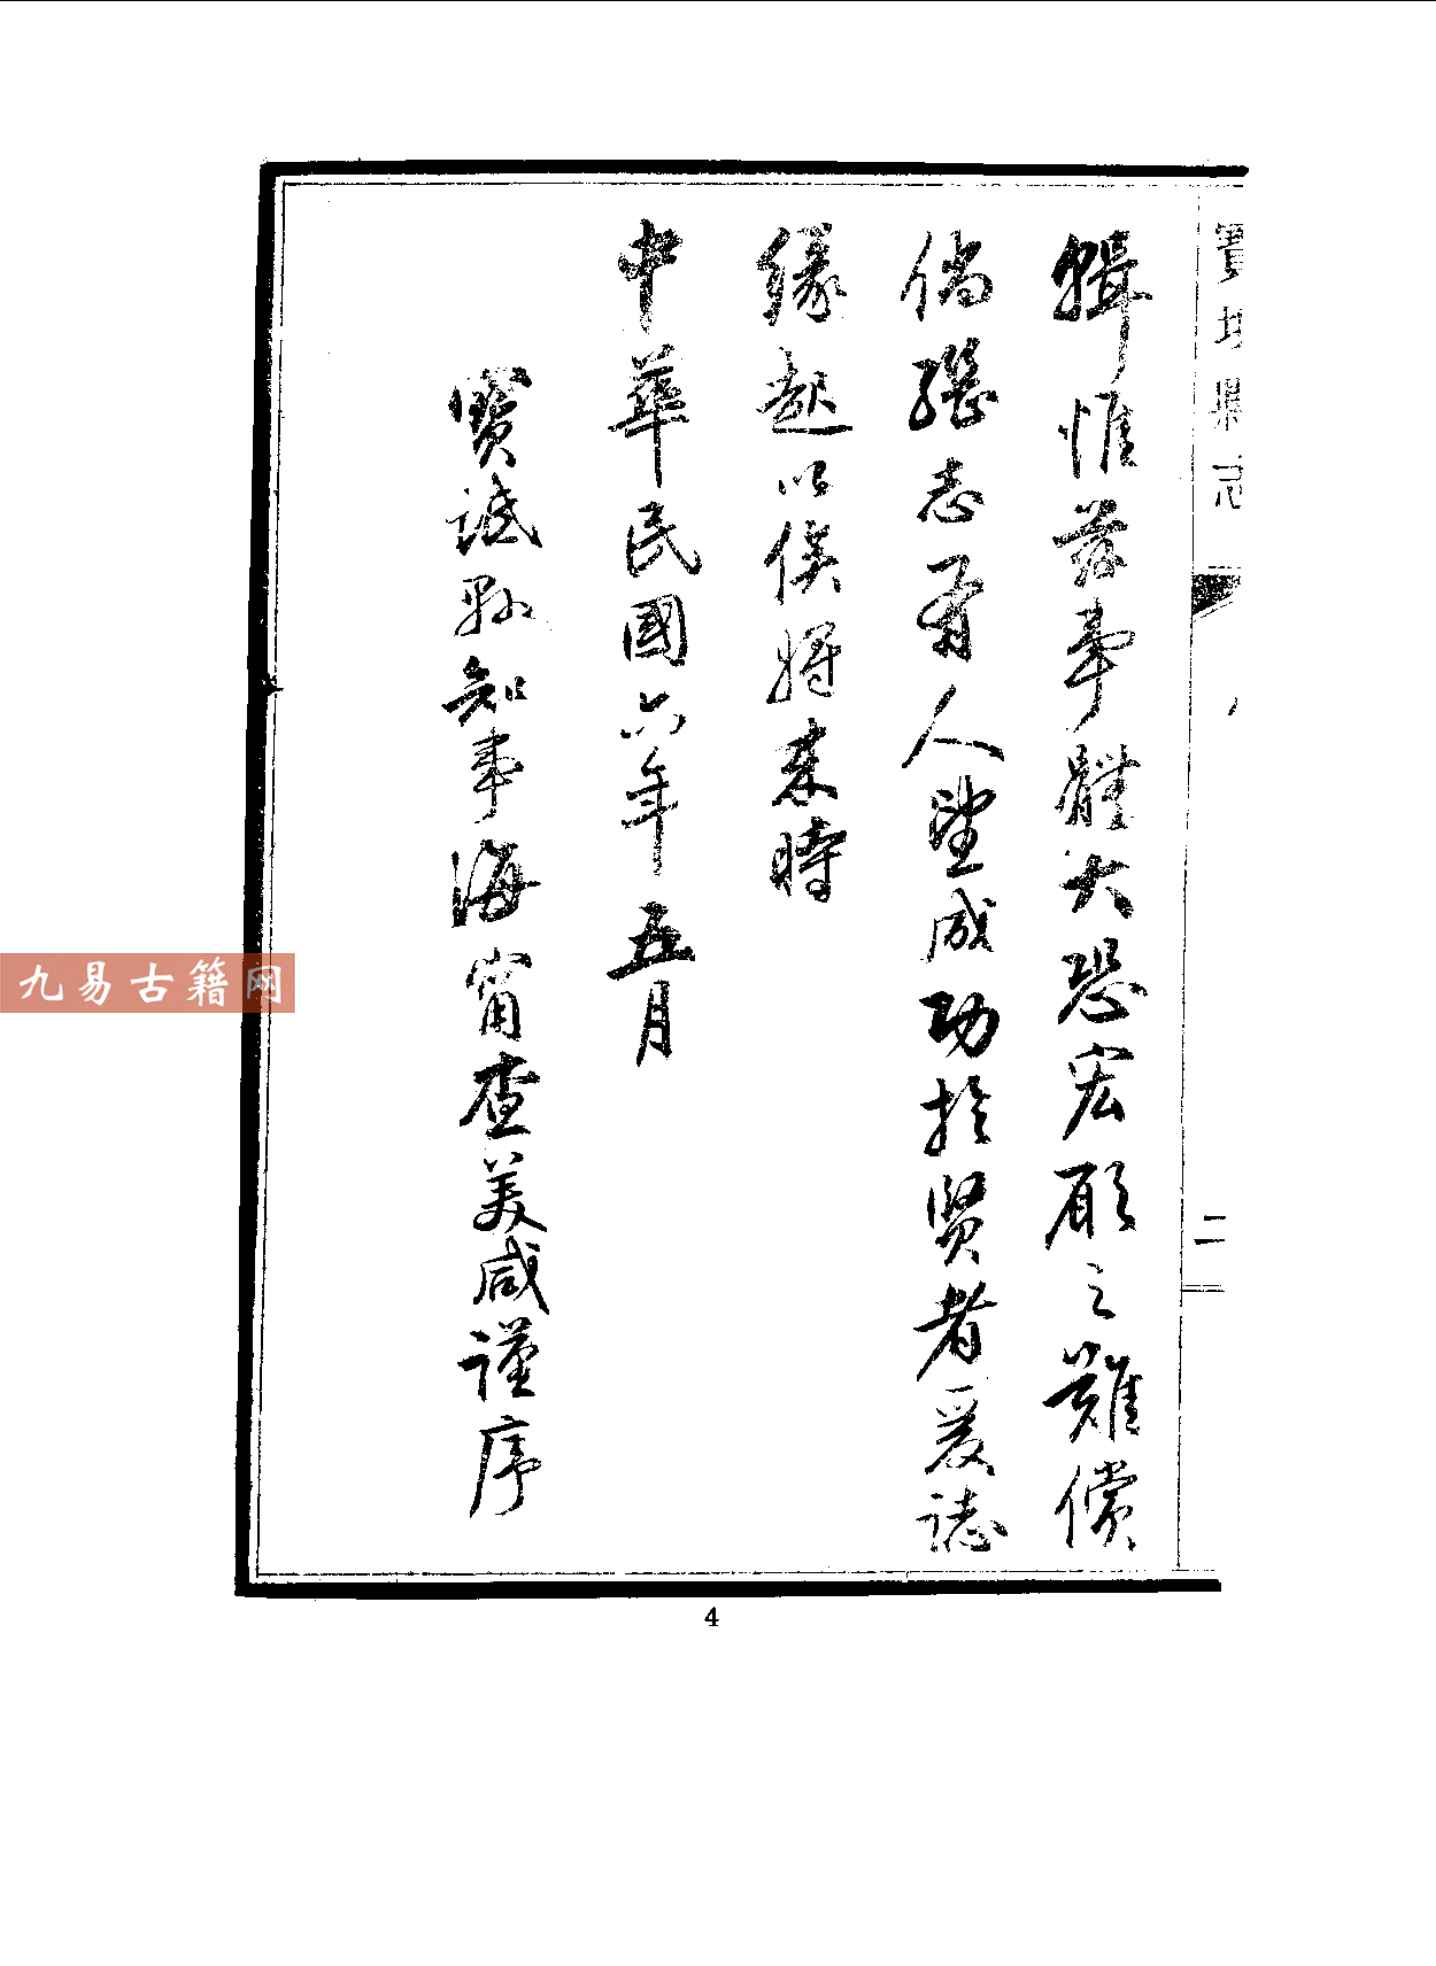 寶坻縣志
二
輯惟茲事體大恐宏願之難償
倘繼志有人望成功於賢者爰誌
緣起以俟將來時
中華民國六年五月
寶坻縣知事海甯查美咸謹序
4
九易古籍网